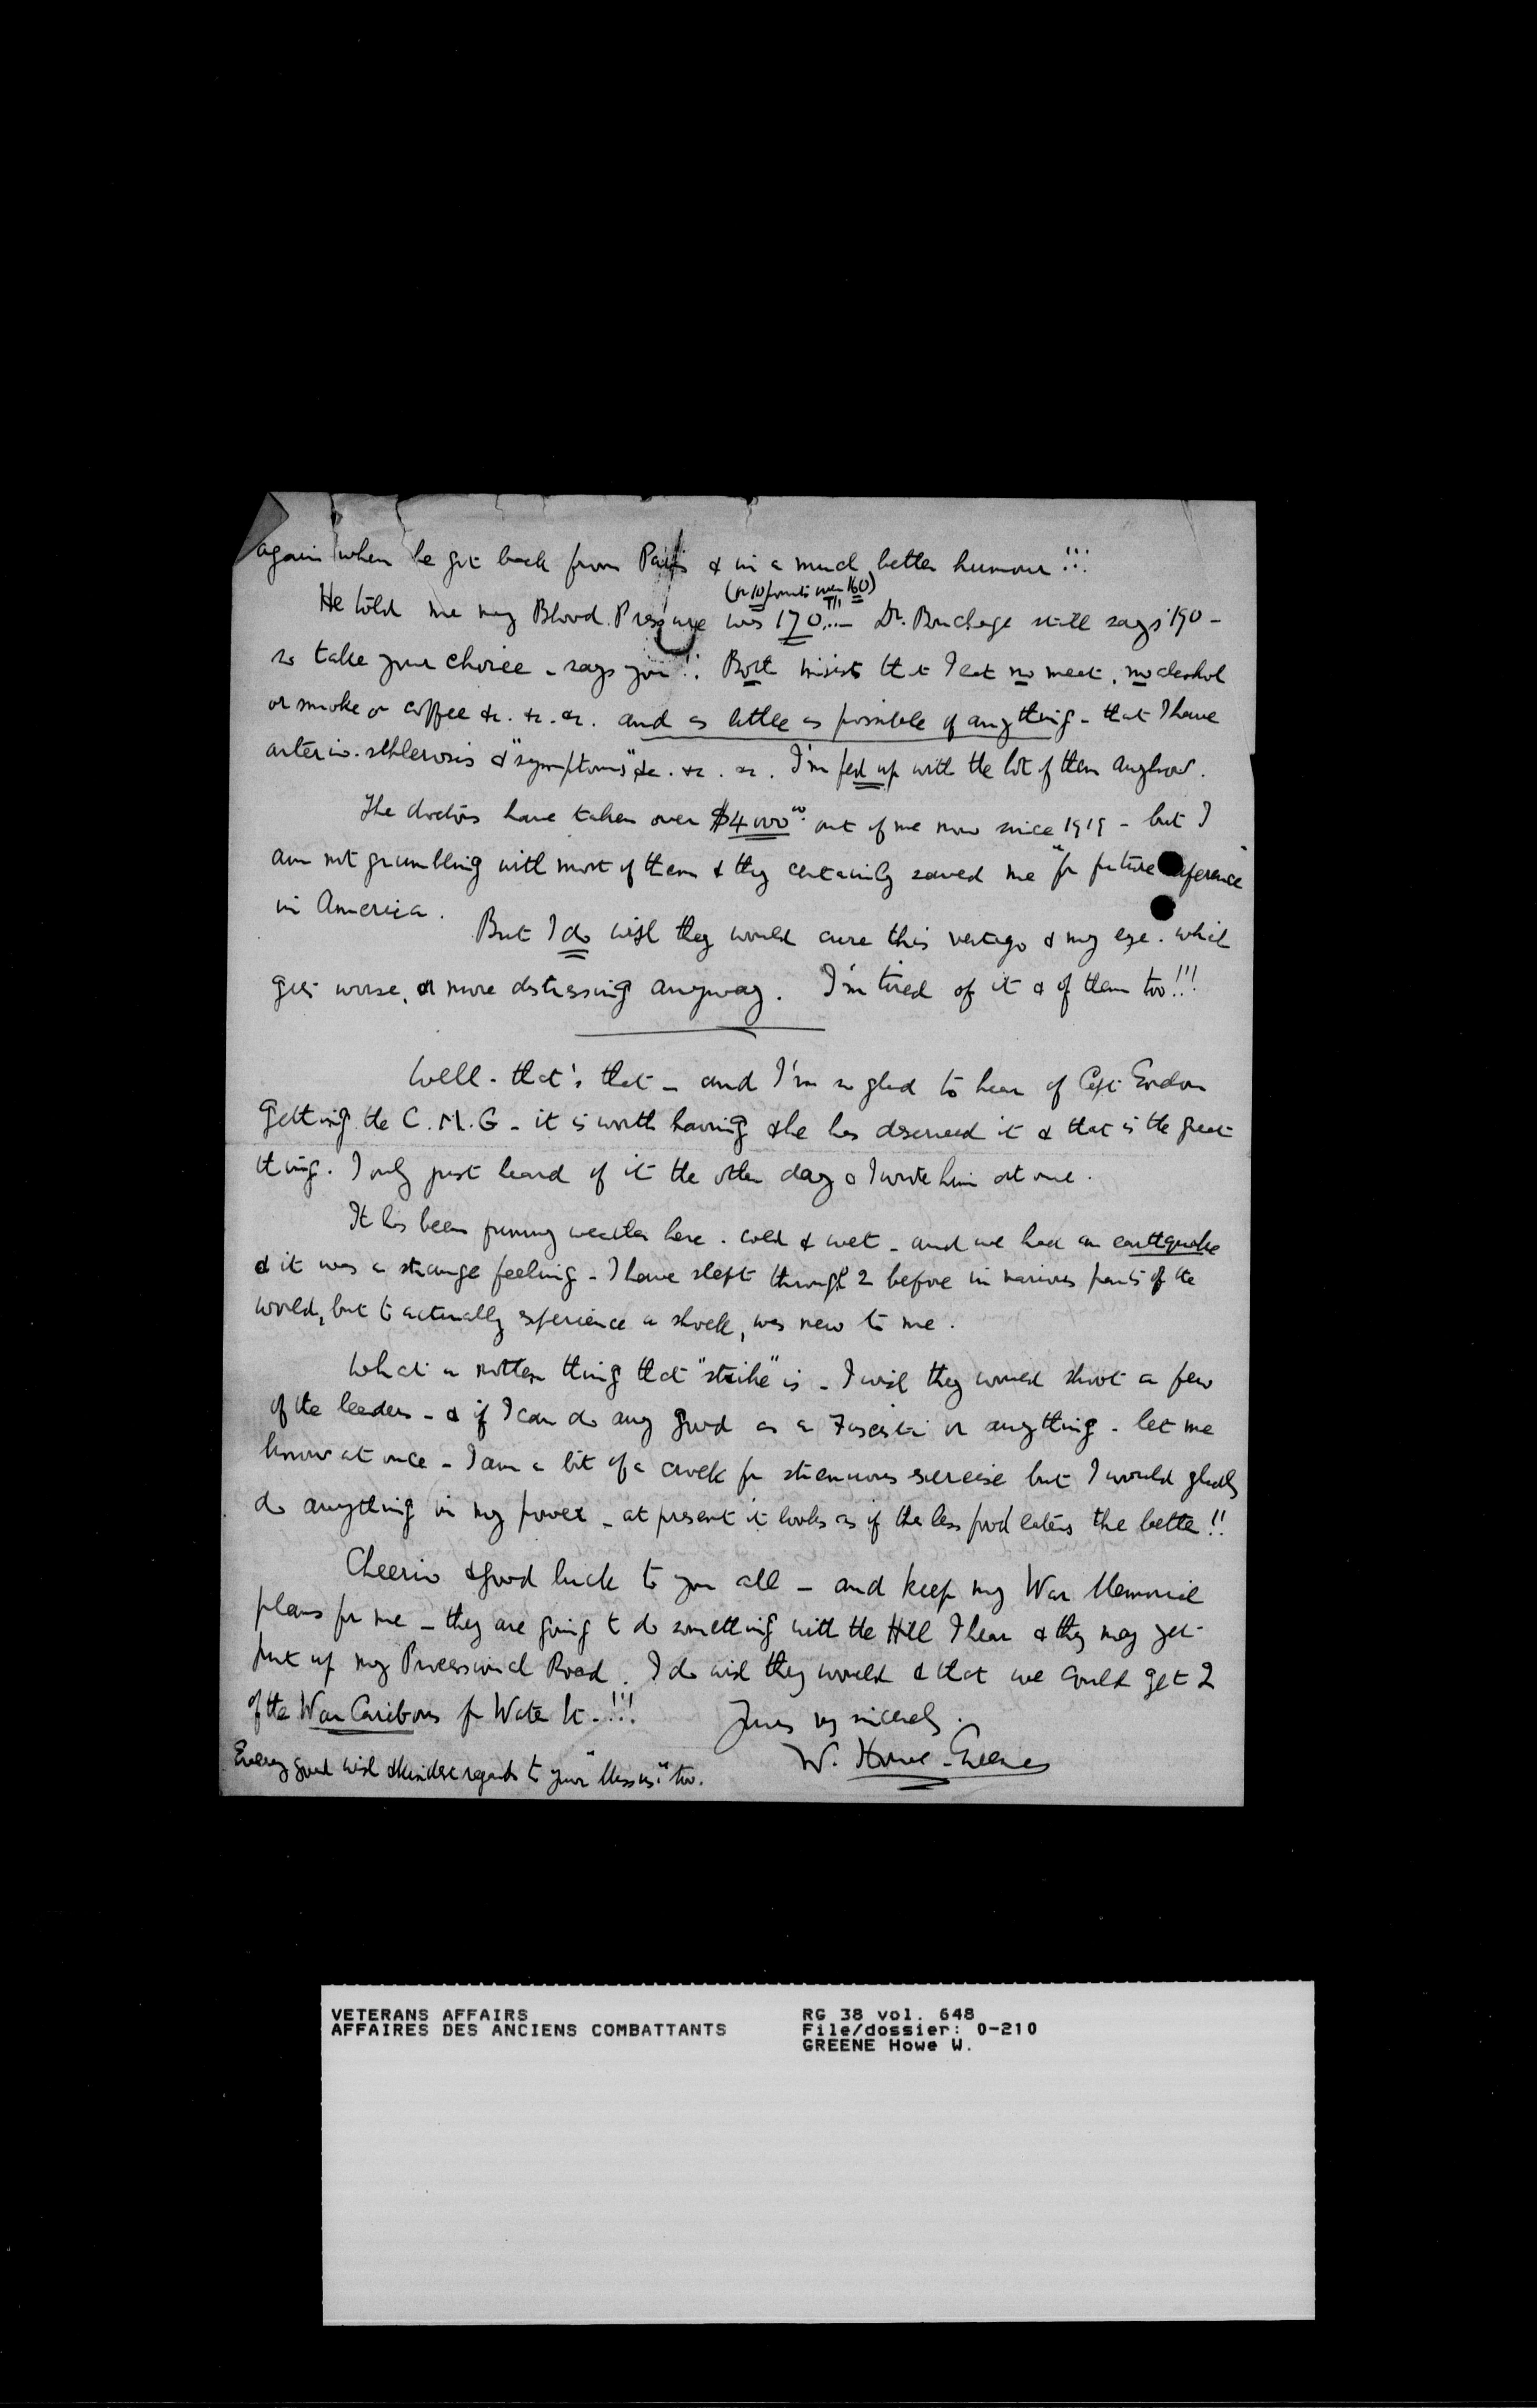 again when he got back from Paris & in a much better humour!!!
(or 10 points over 160)
He told me my Blood Pressure was 170... — Dr. still says 190 -
so take your choice - says you!! Both insists that I eat no meat, no alcohol
or smoke or coffee &c. &c. &c. and as little as possible of anything - that I have
arterio-schlerosis & "symptoms" &c. &c. &c. I'm fed up with the lot of them anyhow.
The doctors have taken over $4000.00 out of me now since 1919 - but I
am not grumbling with most of them & they certainly saved me "for future reference"
in America.
But I do wish they would cure this vertigo & my eye - which
gets worse, or more distressing anyway. I'm tired of it & of them too!!!
Well - that's that - and I'm so glad to hear of Capt Gordon
getting the C.M.G - it is worth having & he has deserved it & that is the great
thing. I only just heard of it the other day & I wrote him at once.
It has been funny weather here - cold & wet - and we had an earthquake
& it was a strange feeling - I have slept through 2 before in various parts of the
world, but to actually experience a shock, was new to me.
What a rotten thing that "strike" is - I wish they would shoot a few
of the leaders - & if I can do any good as a Fascisti or anything - let me
know at once - I am a bit of a crock for strenuous exercise but I would gladly
do anything in my power - at present it looks as if the less food eaters the better!!
Cheerio & good luck to you all - and keep my War Memorial
plans for me - they are going to do something with the Hill I hear & they may yet
put up my Processional Road. I do wish they would & that we could get 2
of the War Caribous for Water St. !!!
Yours very sincerely.
W. Howe-Greene
Every good wish & kindest regards to your "Missus" too.
VETERANS AFFAIRS
AFFAIRES DES ANCIENS COMBATTANTS
RG 38 vol. 648
File/dossier: 0-210
GREENE Howe W.